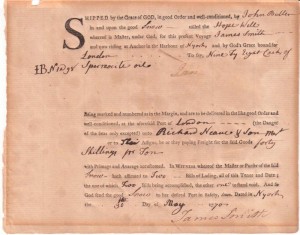 SHIPPED by the Grace of GOD, in good Order and well-conditioned, by John Butler
in and upon the good Snow called the Hope Well
whereof is Master, under God, for this present Voyage James Smith
and now riding at Anchor in the Harbour of and by God's Grace bound for
London To say, Nine by Eight Casks of
Spermaceti oil
Being marked and numbered as in the Margin, and are to be delivered in the like good Order and
well-conditioned, at the aforesaid Port of London (the Danger
of the Seas only excepted) unto Richard & Son
or to Their Assigns, he or they paying Freight for the said Goods forty
Shillings per Ton
with Primage and Average accustomed. In Witness whereof the Master or Purser of the said
Snow hath affirmed to Two Bills of Lading, all of this Tenor and Date; the
one of which Two Bills being accomplished, the other to stand void. And so God
send the good Snow to her desired Port in Safety, Amen. Dated in
Day of May
James Smith